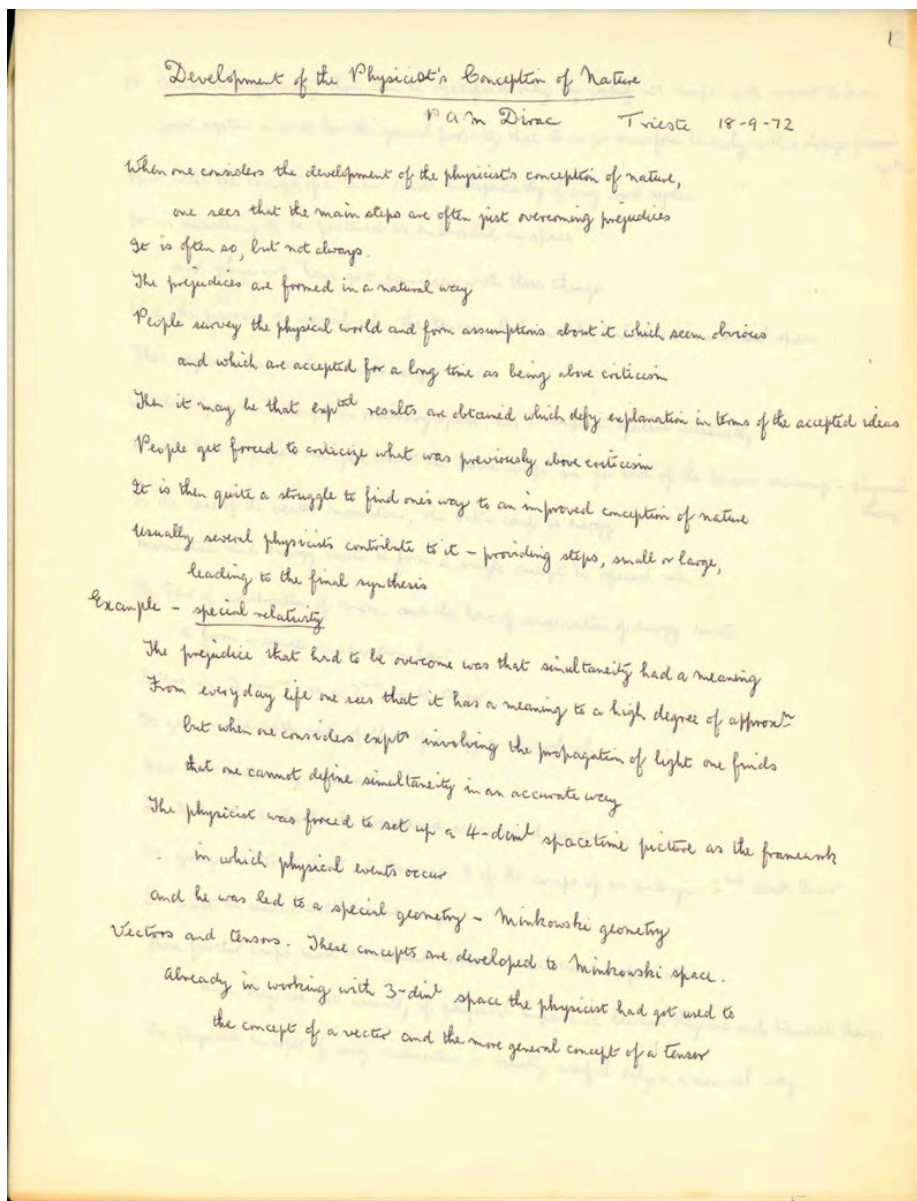 1
Development of the Physicist's Conception of Nature
P A M Dirac Trieste 18-9-72
When one considers the development of the physicist's conception of nature,
one sees that the main steps are often just overcoming prejudices
It is often so, but not always.
The prejudices are formed in a natural way
People survey the physical world and form assumptions about it which seem obvious
and which are accepted for a long time as being above criticism
Then it may be that exptal results are obtained which defy explanation in terms of the accepted ideas
People get forced to criticize what was previously above criticism
It is then quite a struggle to find one's way to an improved conception of nature
Usually several physicists contribute to it – providing steps, small or large,
leading to the final synthesis
Example – special relativity
The prejudice that had to be overcome was that simultaneity had a meaning
From everyday life one sees that it has a meaning to a high degree of approxn
but when one considers expts involving the propagation of light one finds
that one cannot define simultaneity in an accurate way
The physicist was forced to set up a 4-diml spacetime picture as the framework
in which physical events occur
and he was led to a special geometry – Minkowski geometry
Vectors and tensors. These concepts are developed to Minkowski space.
Already in working with 3-diml space the physicist had got used to
the concept of a vector and the more general concept of a tensor